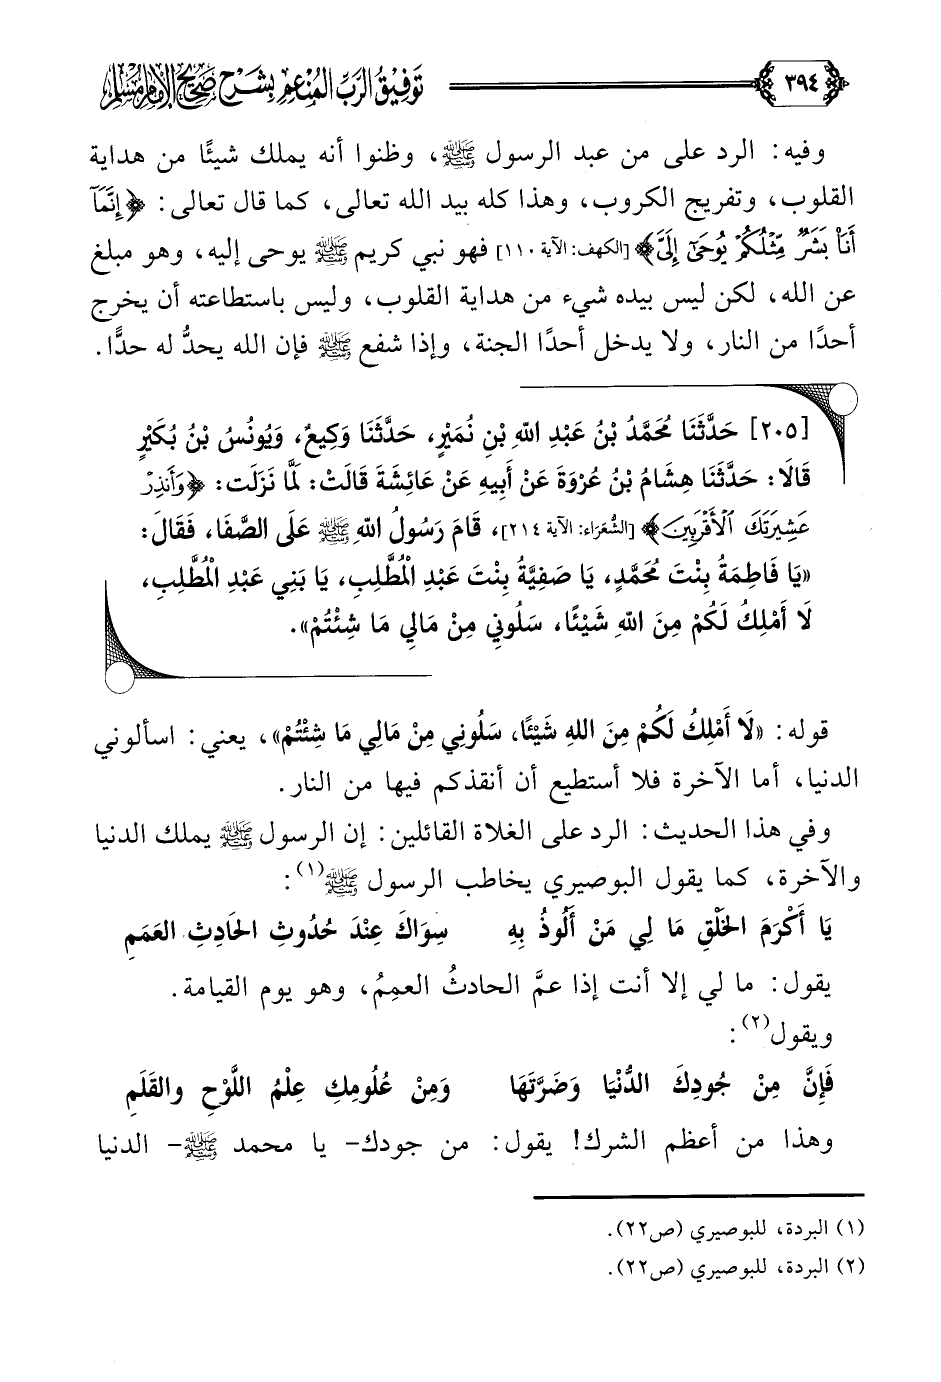 ٣٩٤
توفيق الرب المنعم بشرح صحيح الإمام مسلم
وفيه: الرد على من عبد الرسول ﷺ، وظنوا أنه يملك شيئًا من هداية
القلوب، وتفريج الكروب، وهذا كله بيد الله تعالى، كما قال تعالى: ﴿إِنَّمَآ
أَنَا۠ بَشَرٌ مِّثْلُكُمْ يُوحَىٰٓ إِلَىَّ﴾ [الكهف: الآية ١١٠] فهو نبي كريم ﷺ يوحى إليه، وهو مبلغ
عن الله، لكن ليس بيده شيء من هداية القلوب، وليس باستطاعته أن يخرج
أحدًا من النار، ولا يدخل أحدًا الجنة، وإذا شفع ﷺ فإن الله يحدُّ له حدًّا.
[٢٠٥] حَدَّثَنَا مُحَمَّدُ بْنُ عَبْدِ اللهِ بْنِ نُمَيْرٍ، حَدَّثَنَا وَكِيعٌ، وَيُونُسُ بْنُ بُكَيْرٍ
قَالَا: حَدَّثَنَا هِشَامُ بْنُ عُرْوَةَ عَنْ أَبِيهِ عَنْ عَائِشَةَ قَالَتْ: لَمَّا نَزَلَت: ﴿وَأَنذِرْ
عَشِيرَتَكَ ٱلْأَقْرَبِينَ﴾ [الشُّعَرَاء: الآية ٢١٤]، قَامَ رَسُولُ اللهِ ﷺ عَلَى الصَّفَا، فَقَالَ:
«يَا فَاطِمَةُ بِنْتَ مُحَمَّدٍ، يَا صَفِيَّةُ بِنْتَ عَبْدِ الْمُطَّلِبِ، يَا بَنِي عَبْدِ الْمُطَّلِبِ،
لَا أَمْلِكُ لَكُمْ مِنَ اللهِ شَيْئًا، سَلُونِي مِنْ مَالِي مَا شِئْتُمْ».
قوله: «لَا أَمْلِكُ لَكُمْ مِنَ اللهِ شَيْئًا، سَلُونِي مِنْ مَالِي مَا شِئْتُمْ»، يعني: اسألوني
الدنيا، أما الآخرة فلا أستطيع أن أنقذكم فيها من النار.
وفي هذا الحديث: الرد على الغلاة القائلين: إن الرسول ﷺ يملك الدنيا
والآخرة، كما يقول البوصيري يخاطب الرسول ﷺ(١):
يَا أَكْرَمَ الخَلْقِ مَا لِي مَنْ أَلُوذُ بِهِ سِوَاكَ عِنْدَ حُدُوثِ الحَادِثِ العَمَمِ
يقول: ما لي إلا أنت إذا عمَّ الحادثُ العمِمُ، وهو يوم القيامة.
ويقول(٢):
فَإِنَّ مِنْ جُودِكَ الدُّنْيَا وَضَرَّتَهَا وَمِنْ عُلُومِكِ عِلْمُ اللَّوْحِ والقَلَمِ
وهذا من أعظم الشرك! يقول: من جودك- يا محمد ﷺ- الدنيا
(١) البردة، للبوصيري (ص٢٢).
(٢) البردة، للبوصيري (ص٢٢).